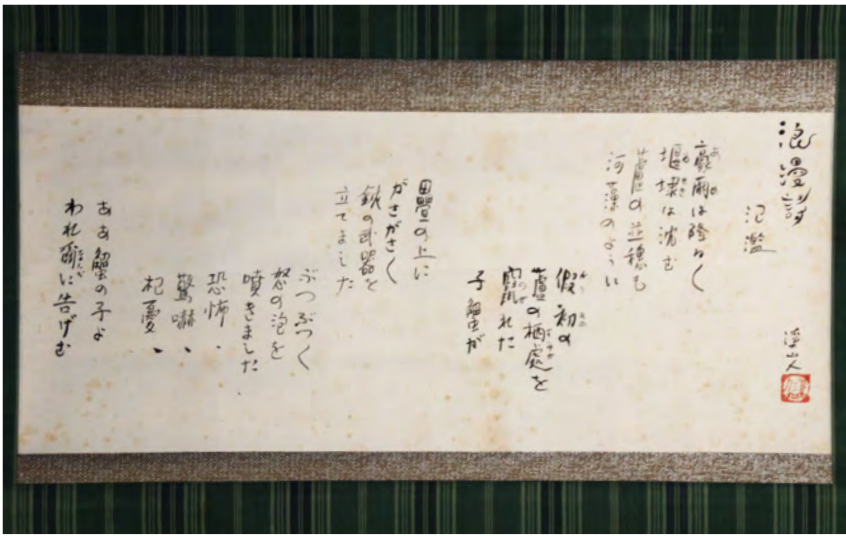 浪漫詩
氾濫
山人
豪雨は降
堰壊は沈む
蘆の並穂も
河藻のように
假初の
蘆の栖處を
れた
子蟹が
疊の上に
がさがさと
鋏の武器を
立てました
ぶつぶつと
怒の泡を
噴きました
恐怖、
驚嚇、
杞憂、
ああ蟹の子よ
われ爾に告げむ